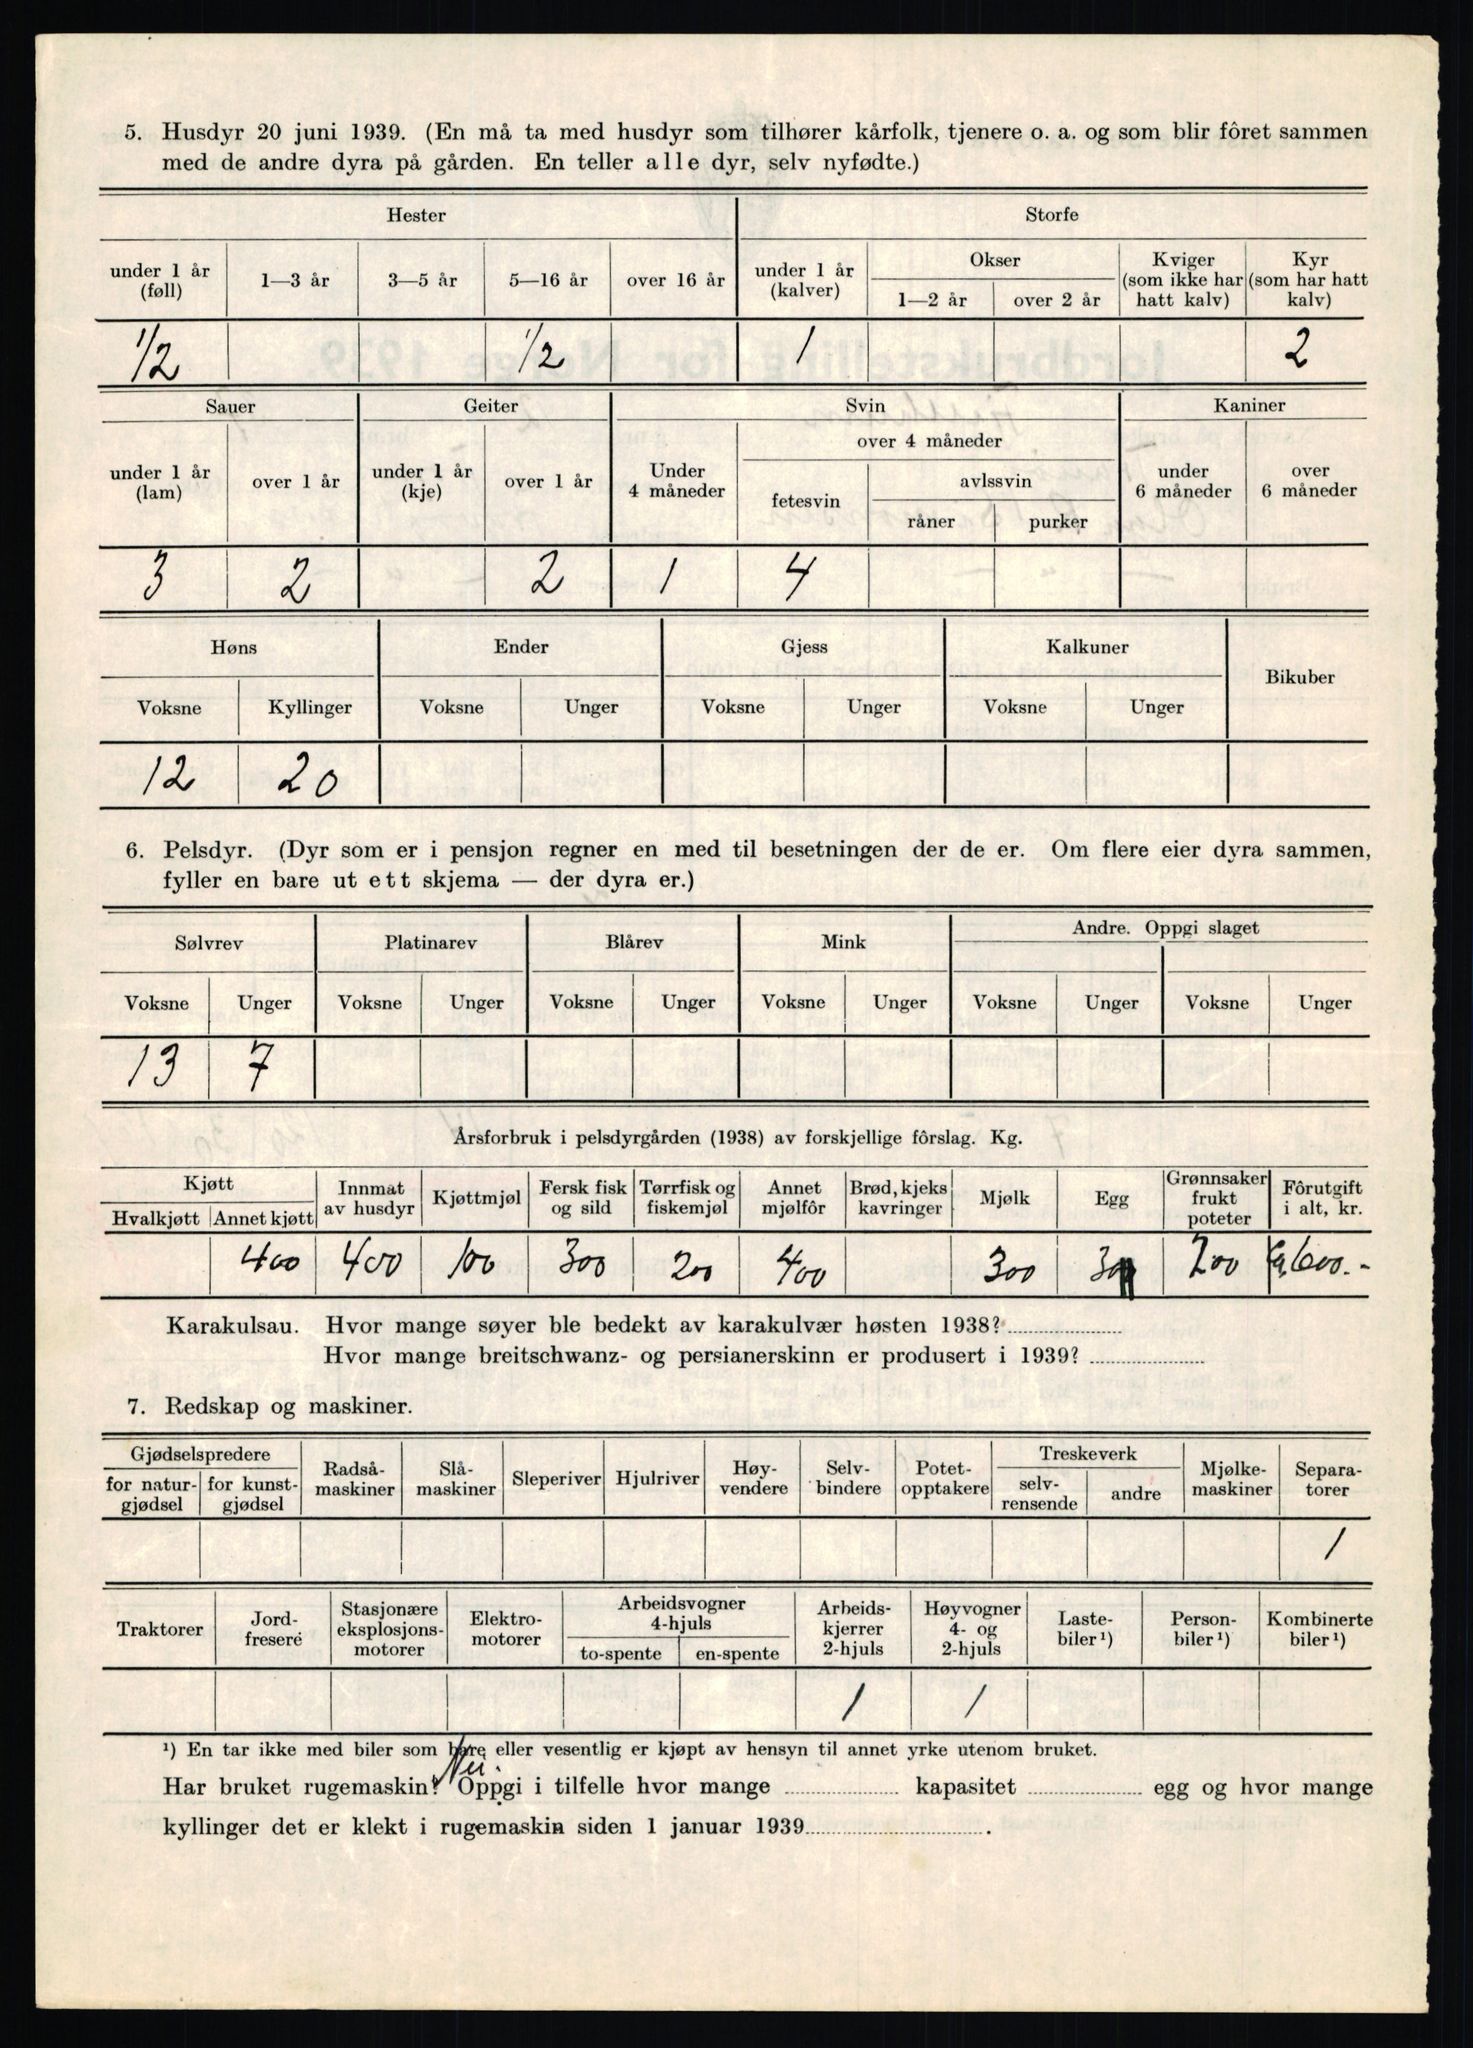 5. Husdyr 20 juni 1939. (En må ta med husdyr som tilhører kårfolk, tjenere o. a. og som blir fôret sammen
med de andre dyra på gården. En teller alle dyr, selv nyfødte.)
Hester Storfe
under 1 år (føll) 1—3 år 3—5 år 5—16 år over 16 år under 1 år (kalver) Okser 1—2 år over 2 år Kviger (som ikke har hatt kalv) Kyr (som har hatt kalv)
1/2 1/2 1 2
Sauer Geiter Svin Kaniner
under 1 år (lam) over 1 år under 1 år (kje) over 1 år Under 4 måneder over 4 måneder fetesvin avlssvin råner purker under 6 måneder over 6 måneder
3 2 2 1 4
Høns Ender Gjess Kalkuner Bikuber
Voksne Kyllinger Voksne Unger Voksne Unger Voksne Unger
12 20
6. Pelsdyr. (Dyr som er i pensjon regner en med til besetningen der de er. Om flere eier dyra sammen,
fyller en bare ut ett skjema — der dyra er.)
Sølvrev Platinarev Blårev Mink Andre. Oppgi slaget
Voksne Unger Voksne Unger Voksne Unger Voksne Unger Voksne Unger Voksne Unger
13 7
Årsforbruk i pelsdyrgården (1938) av forskjellige fôrslag. Kg.
Kjøtt Hvalkjøtt Annet kjøtt Innmat av husdyr Kjøttmjøl Fersk fisk og sild Tørrfisk og fiskemjøl Annet mjølfôr Brød, kjeks kavringer Mjølk Egg Grønnsaker frukt poteter Fôrutgift i alt, kr.
400 400 100 300 200 400 300 200 600.-
Karakulsau. Hvor mange søyer ble bedekt av karakulvær høsten 1938?
Hvor mange breitschwanz- og persianerskinn er produsert i 1939?
7. Redskap og maskiner.
Gjødselspredere for naturgjødsel for kunstgjødsel Radsåmaskiner Slåmaskiner Sleperiver Hjulriver Høyvendere Selvbindere Potetopptakere Treskeverk selvrensende andre Mjølkemaskiner Separatorer
1
Traktorer Jordfresere Stasjonære eksplosjonsmotorer Elektromotorer Arbeidsvogner 4-hjuls to-spente en-spente Arbeidskjerrer 2-hjuls Høyvogner 4- og 2-hjuls Lastebiler ¹) Personbiler ¹) Kombinerte biler ¹)
1 1
¹) En tar ikke med biler som bare eller vesentlig er kjøpt av hensyn til annet yrke utenom bruket.
Nei.
Har bruket rugemaskin? Oppgi i tilfelle hvor mange kapasitet egg og hvor mange
kyllinger det er klekt i rugemaskin siden 1 januar 1939 .